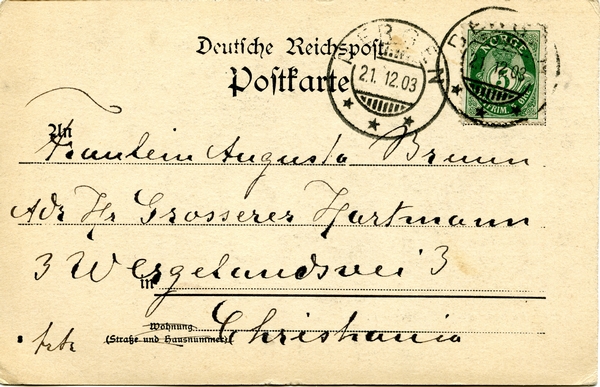 Deutsche Reichspost
Postkarte
BERGEN
21.12.03
BERGEN
12.03
NORGE
5
FRIM. 5 ØRE
An
Fräulein Augusta Bruun
Adr Hr Grosserer Hartmann
3 Wergelandsvei 3
in
Christiania
Wohnung
(Straße und Hausnummer)